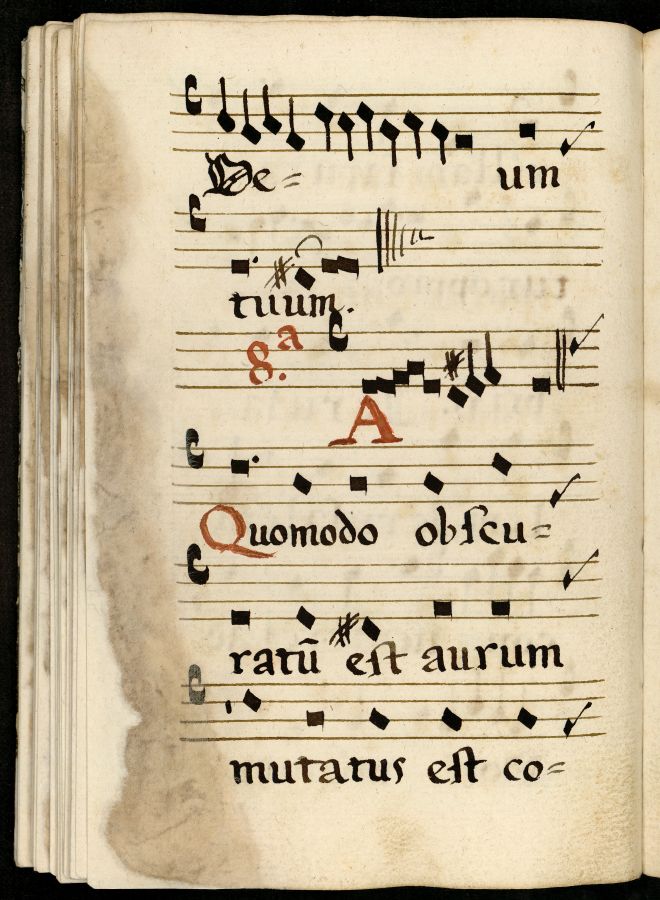 De= um
tuum.
8.a
A
Quomodo obscu=
ratū est aurum
mutatus est co=